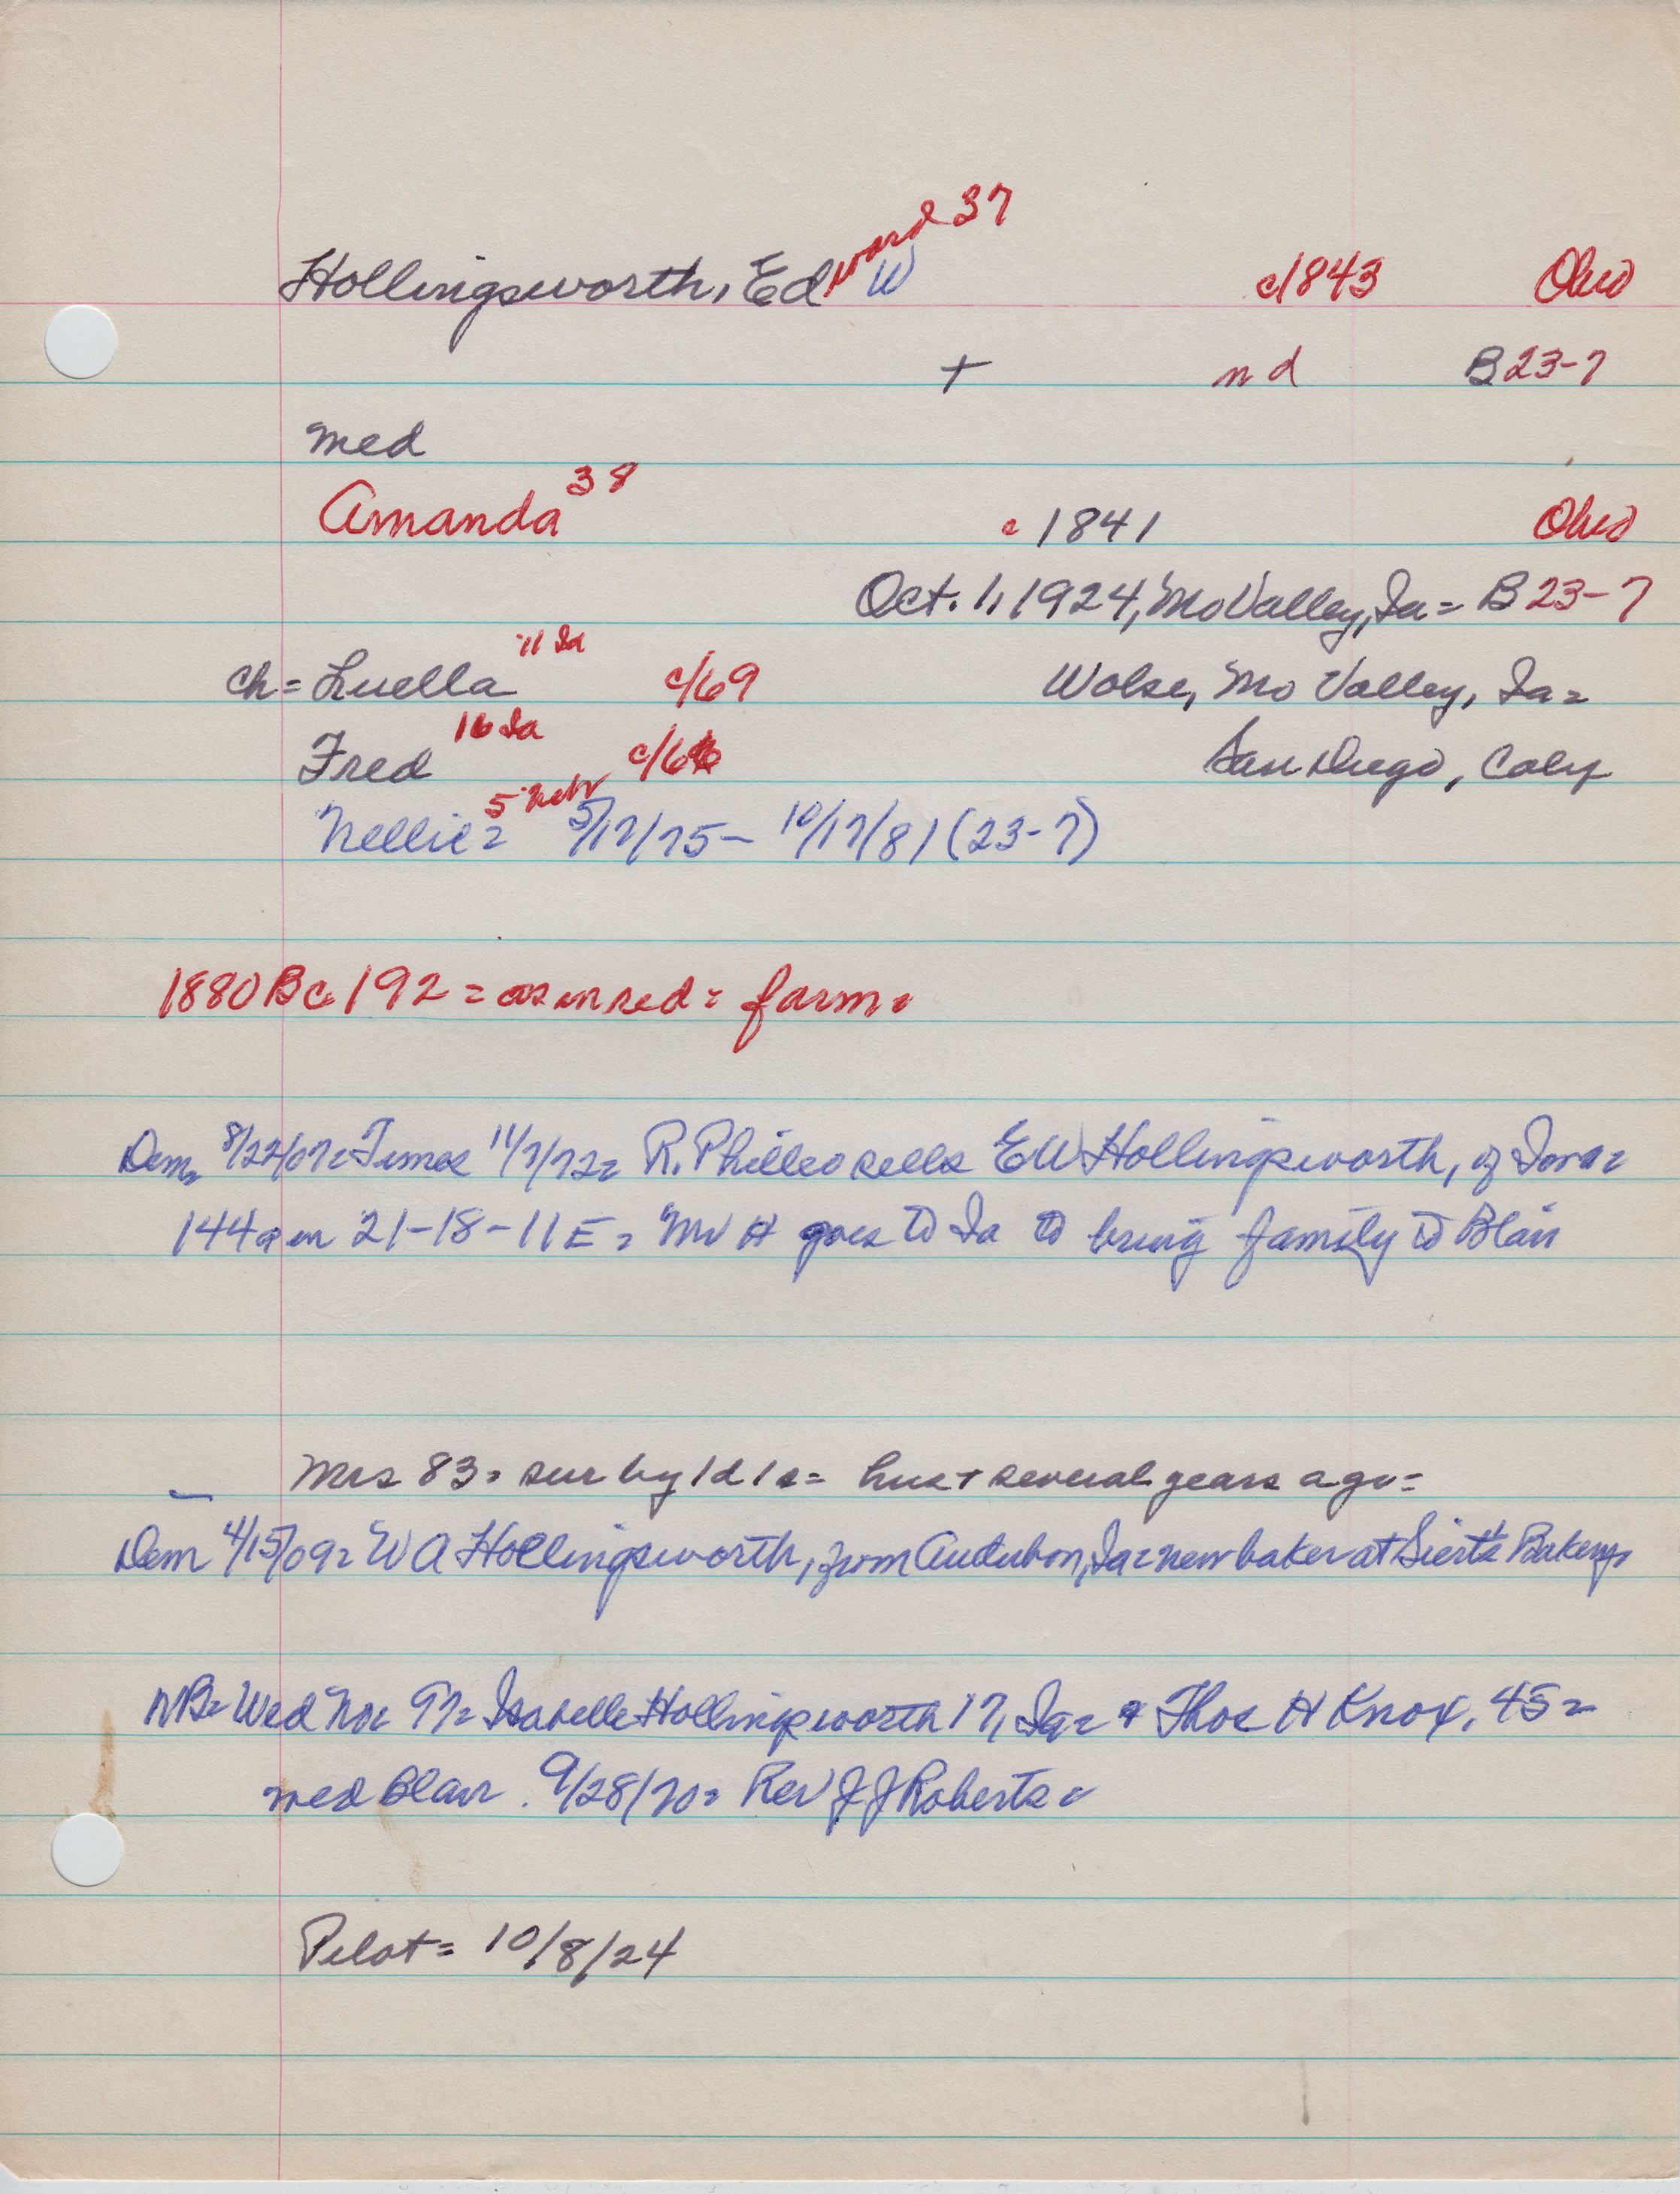 Hollingsworth, Edward 37 W c/1843 Ohio
+ nd B 23-7
med
Amanda 38 c 1841 Ohio
Oct. 1, 1924, Mo Valley, Ia = B 23-7
ch = Luella 11 Ia c/69 Wolse, Mo Valley, Ia =
Fred 16 Ia c/64 San Diego, Calif
Nellie = 5 Nebr 5/17/75 - 10/17/81 (23-7)
1880 Bc 192 = as in red = farm =
Dem 8/22/07 = Times 11/7/72 = R. Philleo sells E W Hollingsworth, of Iowa =
144a in 21-18-11E = Mr H goes to Ia to bring family to Blair
Mrs 83 = sur by 1d 1s = hus + several years ago =
Dem 4/15/09 = W A Hollingsworth, from Audubon, Ia = new baker at Siert's Bakery
MB = Wed No 97 = Isabelle Hollingsworth 17, Ia = & Thos H Knox, 45 =
med Blair 9/28/70 = Rev J J Roberts =
Pilot = 10/8/24